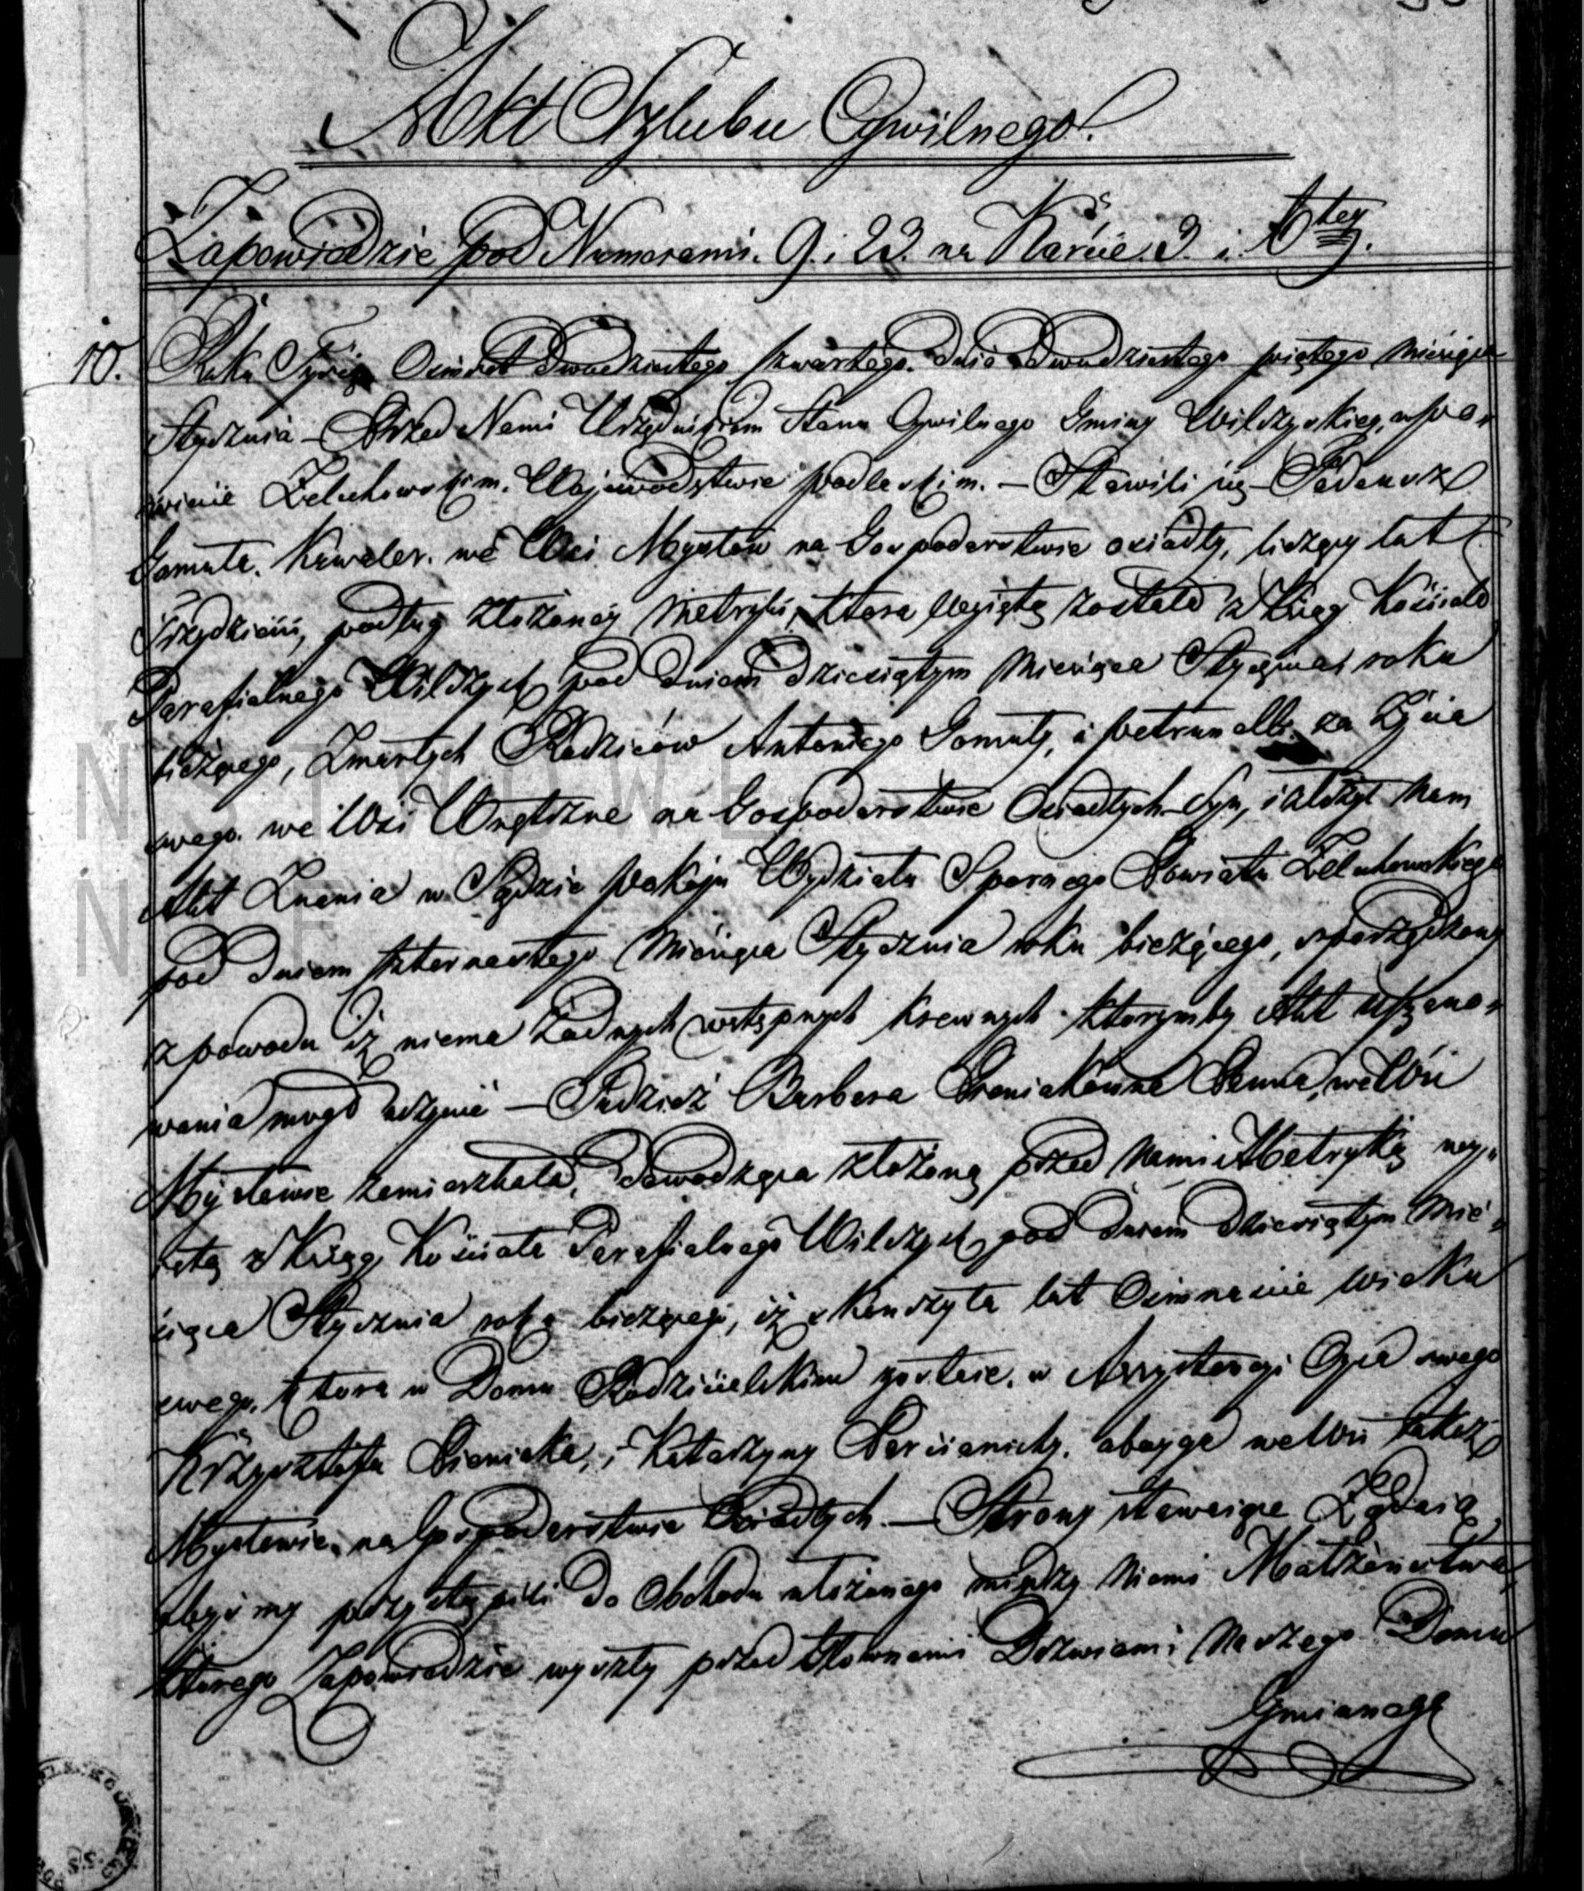 Akt Szlubu Cywilnego.
Zapowiedzie pod Numerami. 9. i 23. na Karcie 3. i 6tey.
10. Roku Tysiąc Osimset Dwudziestego Czwartego. dnia Dwudziestego piątego Miesiąca
Stycznia – Przed Nami Urzędnikiem Stanu Cywilnego Gminy Wilczyskiey, w Po-
wiecie Żelechowskim. Wojewodztwie podleskim. – Stawili się – Tadeusz
Gomuła. Kawaler. we Wsi Mysłow na Gospodarstwie osiadły, liczący lat
Trzydzieści, podług złożoney Metryki, ktora wyięta została z Xiąg Kościoła
Parafialnego Wilczysk pod dniem dziesiątym Miesiąca Stycznia roku
bieżącego, Zmarłych Rodziców Antoniego Gomuły, i Petronelli za życia
swego. we Wsi Oseadłych Syn, i złożył Nam
Akt Znania w Sądzie Pokoju Wydziału Spornego Powiatu Żelechowskiego
pod dniem czternastego Miesiąca Stycznia roku bieżącego, sporządzony
z powodu iż niema żadnych wstępnych krewnych ktorymby Akt uszano-
wania mogł uczynić – Tudzież Barbara Panna, we Wsi
Mysłowie zamieszkała, dowodząca złożoną przed Nami Metryką wy-
jętą z Xiąg Kościoła Parafialnego Wilczysk pod dniem Dziesiątym Mie-
siąca Stycznia roku bieżącego, iż skończyła lat Osimnaście wieku
swego. ktora w Domu Rodzicielskim zostaie. w Assystencyi Oyca swego
Krzysztofa i Katarzyny obojga we Wsi takoż
Mysłowie, na Gospodarstwie Osiadłych. – Strony stawaiące Żądaią
abyśmy przystąpili do Obchodu ułożonego między Niemi Małżenstwa,
ktorego Zapowiedzie wyszły przed Głownemi Drzwiami Naszego Domu
Gminnego